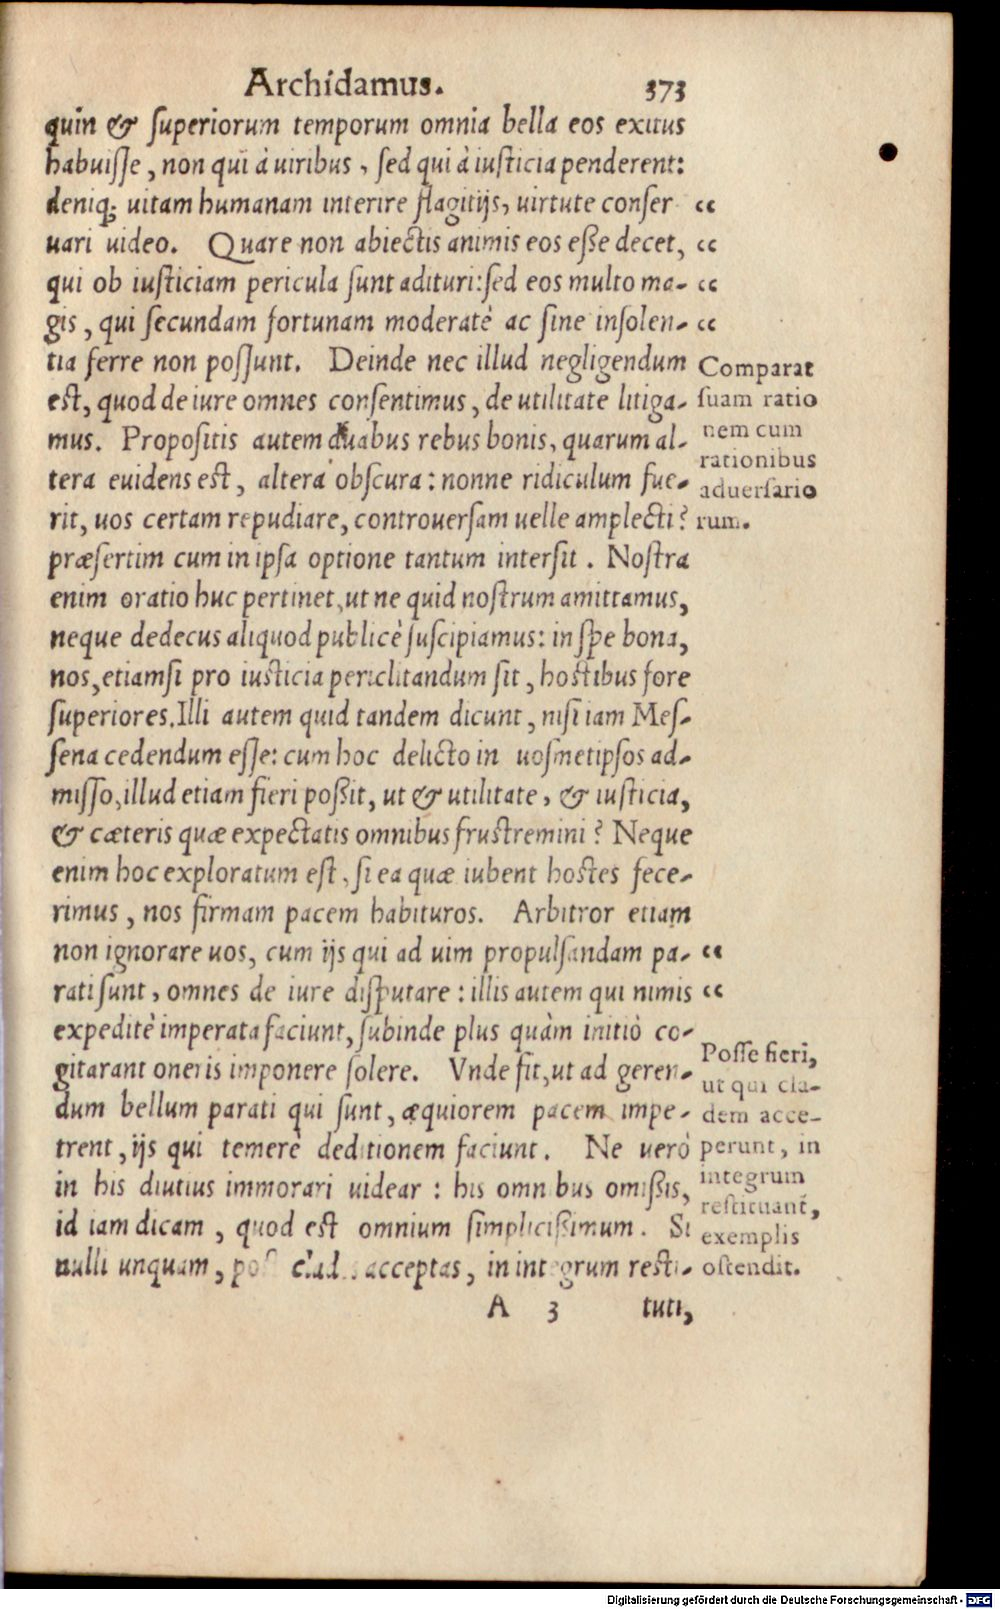 Archidamus. 373
quin & ſuperiorum temporum omnia bella eos exitus
habuiſſe, non qui à uiribus, ſed qui à iuſticia penderent:
deniq; uitam humanam interire flagitijs, uirtute conſer “
uari uideo. Quare non abiectis animis eos eſſe decet, “
qui ob iuſticiam pericula ſunt adituri: ſed eos multo ma- “
gis, qui ſecundam fortunam moderatè ac ſine inſolen- “
tia ferre non poſſunt. Deinde nec illud negligendum
est, quod de iure omnes conſentimus, de utilitate litiga-
mus. Propoſitis autem duabus rebus bonis, quarum al-
tera euidens est, altera obſcura: nonne ridiculum fue-
rit, uos certam repudiare, controuerſam uelle amplecti?
præſertim cum in ipſa optione tantum interſit. Noſtra
enim oratio huc pertinet, ut ne quid noſtrum amittamus,
neque dedecus aliquod publicè ſuſcipiamus: in ſpe bona,
nos, etiamſi pro iuſticia periclitandum ſit, hoſtibus fore
ſuperiores. Illi autem quid tandem dicunt, niſi iam Meſ-
ſena cedendum eſſe: cum hoc delicto in uoſmetipſos ad-
miſſo, illud etiam fieri poßit, ut & utilitate, & iuſticia,
& cæteris quæ expectatis omnibus fruſtremini? Neque
enim hoc exploratum est, ſi ea quæ iubent hoſtes fece-
rimus, nos firmam pacem habituros. Arbitror etiam
non ignorare uos, cum ijs qui ad uim propulſandam pa- “
rati ſunt, omnes de iure diſputare: illis autem qui nimis “
expeditè imperata faciunt, ſubinde plus quàm initiò co-
gitarant oneris imponere ſolere. Vnde fit, ut ad geren-
dum bellum parati qui ſunt, æquiorem pacem impe-
trent, ijs qui temerè deditionem faciunt. Ne uerò
in his diutius immorari uidear: his omnibus omißis,
id iam dicam, quod est omnium ſimplicißimum. Si
nulli unquam, acceptas, in integrum reſti-
A 3 tuti,
Comparat
ſuam ratio
nem cum
rationibus
aduerſario
rum.
Poſſe fieri,
ut qui cla-
dem acce-
perunt, in
integrum
reſtituant̃,
exemplis
oſtendit.
Digitalisierung gefördert durch die Deutsche Forschungsgemeinschaft - DFG